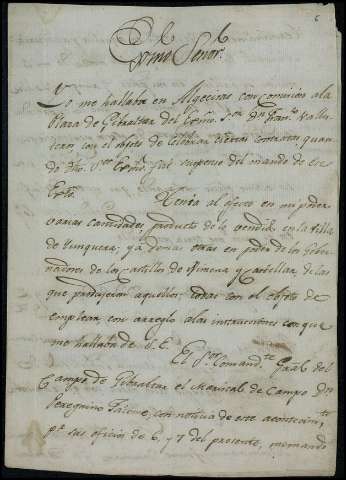 6
Exmo Señor.
Yo me hallaba en Algeciras con comision a la
Plaza de Gibraltar del Exmo. Sor. Dn. Fran.co Valles
teros con el objeto de celebrar ciertas contratas, quan
do dho. Sor. Exmo. fué suspenso del mando de ese
Exto.
Tenia al efecto en mi poder
varias cantidades, producto de la vendida en la Villa
de Yunquera; y ademas otras en poder de los Gober
nadores de los castillos de Ximena y Castellar, de las
que produjeron aquellos, todas con el objeto de
emplear con arreglo a las instrucciones con que
me hallaba de S. E.
El Sor. Comand.te Gral. del
Campo de Gibraltar el Mariscal de Campo Dn.
Peregrino Jacome, con noticia de este acontecim.to
p.r sus oficios de 6, y 7 del presente, me mandó